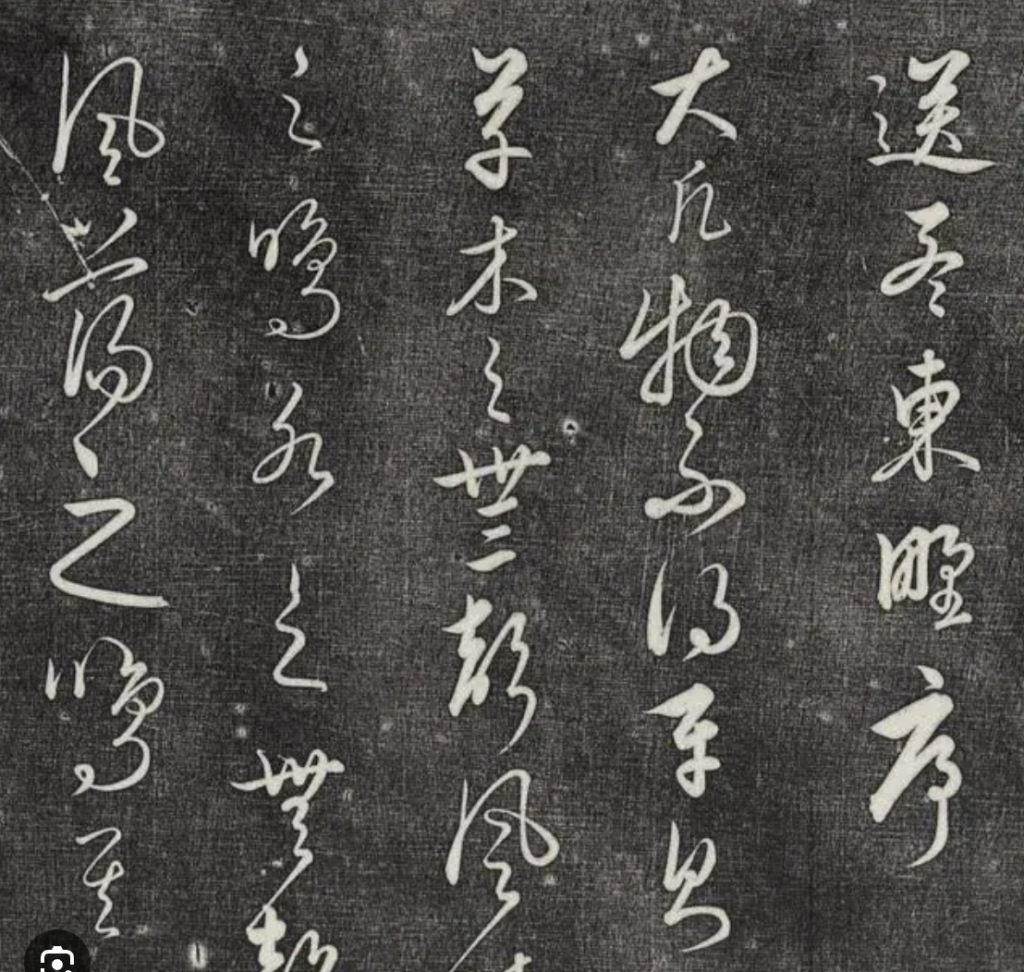 送孟東野序
大凡物不得平則
草木之無聲風
之鳴水之無聲
風蕩之鳴其